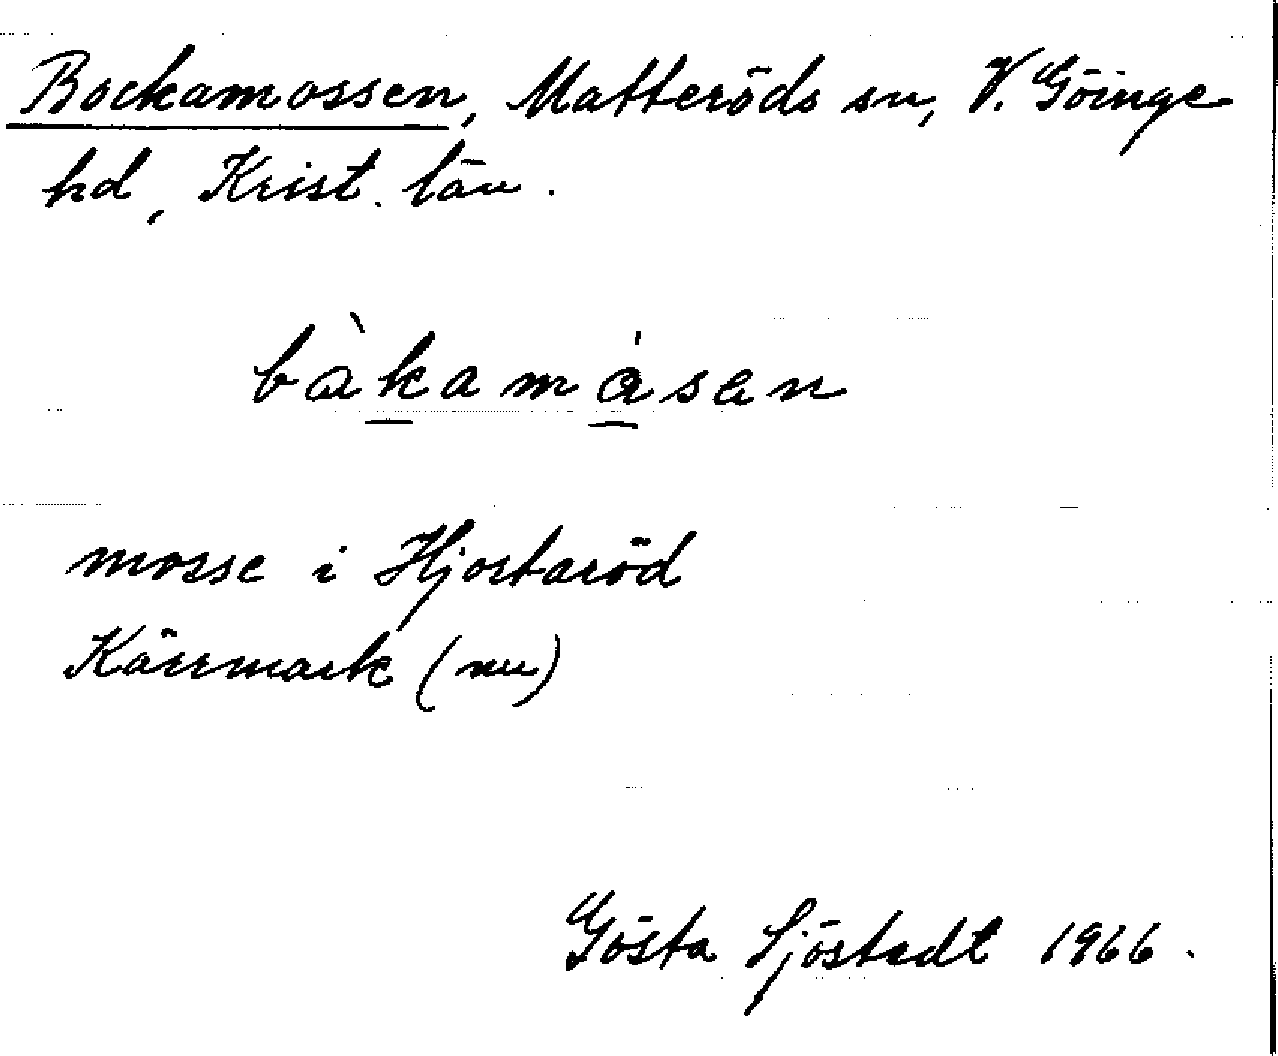 Bockamossen, Matteröds sn, V. Göinge
hd, Krist. län.
bàkamåsen
mosse i Hjortaröd
Kärrmark (nu)
Gösta Sjöstedt 1966.